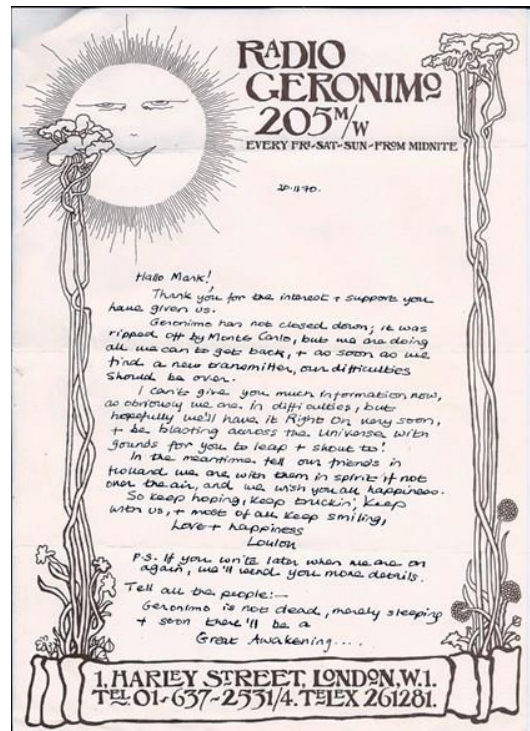 RADIO
GERONIMO
205 M/W
EVERY FRI-SAT-SUN-FROM MIDNITE
20.11.70.
Hallo Mark!
Thank you for the interest + support you
have given us.
Geronimo has not closed down; it was
ripped off by Monte Carlo, but we are doing
all we can to get back, + as soon as we
find a new transmitter, our difficulties
should be over.
I can't give you much information now,
as obviously we are in difficulties, but
hopefully we'll have it Right On very soon,
+ be blasting across the universe with
sounds for you to leap + shout to!
In the meantime tell our friends in
Holland we are with them in spirit if not
over the air, and we wish you all happiness.
So keep hoping, keep truckin', keep
with us, + most of all keep smiling,
Love + happiness
P.S. If you write later when we are on
again, we'll send you more details.
Tell all the people:—
Geronimo is not dead, merely sleeping
+ soon there'll be a
Great Awakening....
1, HARLEY STREET, LONDON, W.1.
TEL 01-637-2531/4. TELEX 261281.